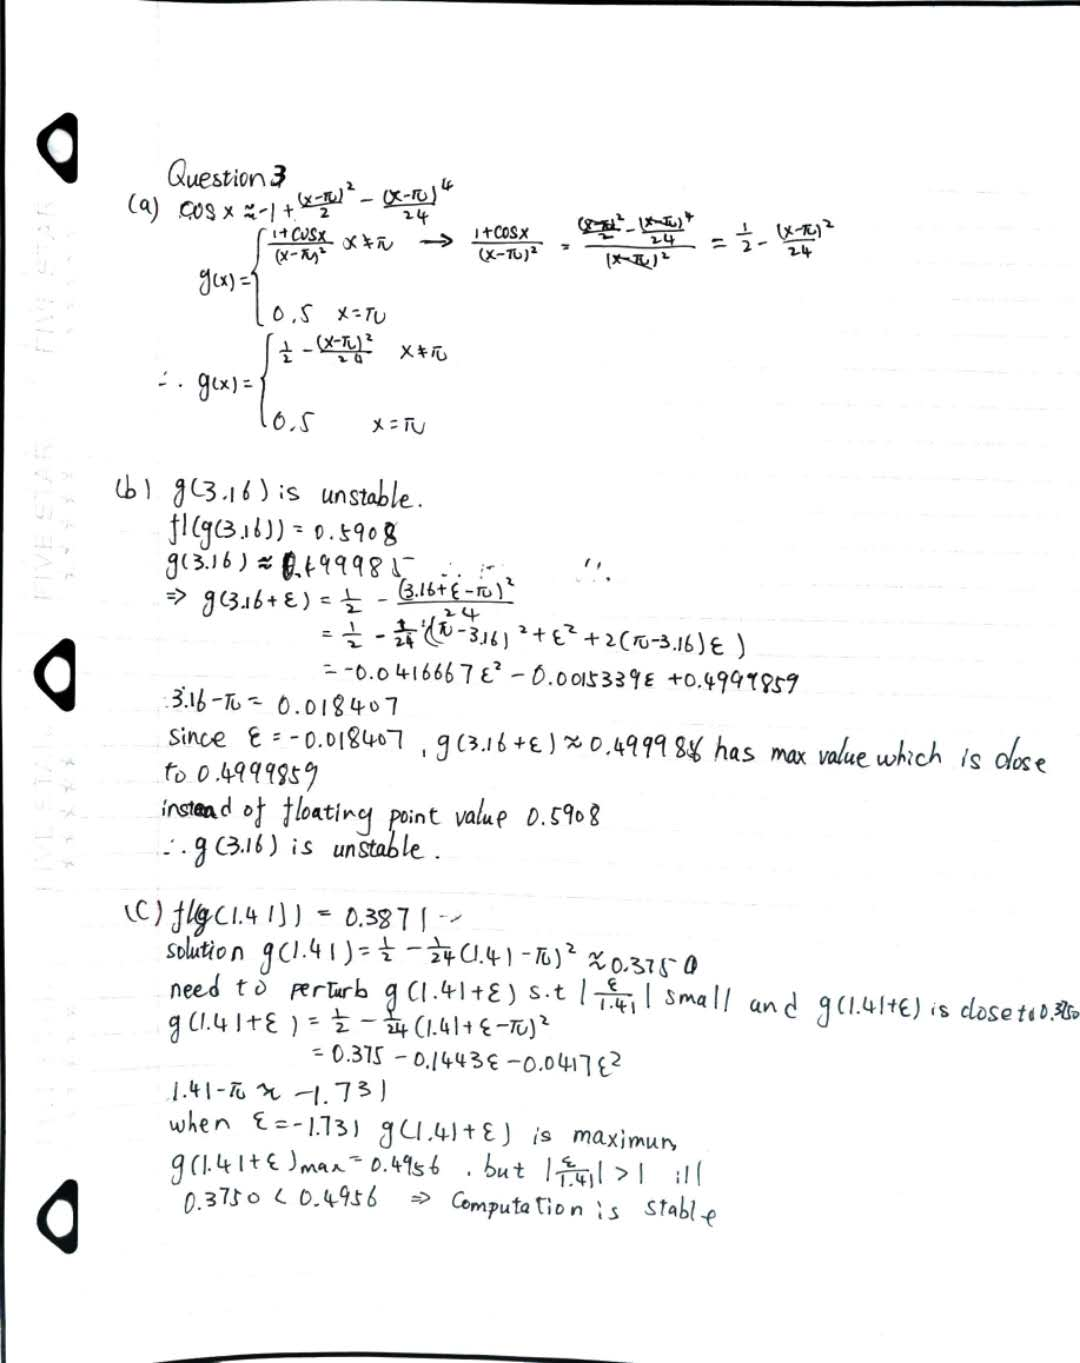 Question 3
(a) cos x ≈ -1 + (x-π)²/2 - (x-π)⁴/24
g(x) = { (1+cosx)/(x-π)² x≠π → (1+cosx)/(x-π)² = ((x-π)²/2 - (x-π)⁴/24)/(x-π)² = 1/2 - (x-π)²/24
0.5 x=π
∴ g(x) = { 1/2 - (x-π)²/24 x≠π
0.5 x=π
(b) g(3.16) is unstable.
fl(g(3.16)) = 0.5908
g(3.16) ≈ 0.499985
⇒ g(3.16+ε) = 1/2 - (3.16+ε-π)²/24
= 1/2 - 1/24 ((π-3.16)² + ε² + 2(π-3.16)ε)
= -0.0416667ε² - 0.0015339ε + 0.4999859
3.16-π = 0.018407
since ε = -0.018407, g(3.16+ε) ≈ 0.49998 has max value which is close
to 0.4999859
instead of floating point value 0.5908
∴ g(3.16) is unstable.
(c) fl(g(1.41)) = 0.3871
solution g(1.41) = 1/2 - 1/24 (1.41-π)² ≈ 0.3750
need to perturb g(1.41+ε) s.t |ε/1.41| small and g(1.41+ε) is close to 0.3750
g(1.41+ε) = 1/2 - 1/24 (1.41+ε-π)²
= 0.375 - 0.1443ε - 0.0417ε²
1.41-π ≈ -1.731
when ε = -1.731 g(1.41+ε) is maximum
g(1.41+ε)max = 0.4956 . but |ε/1.41| > 1 ill
0.3750 < 0.4956 ⇒ Computation is stable